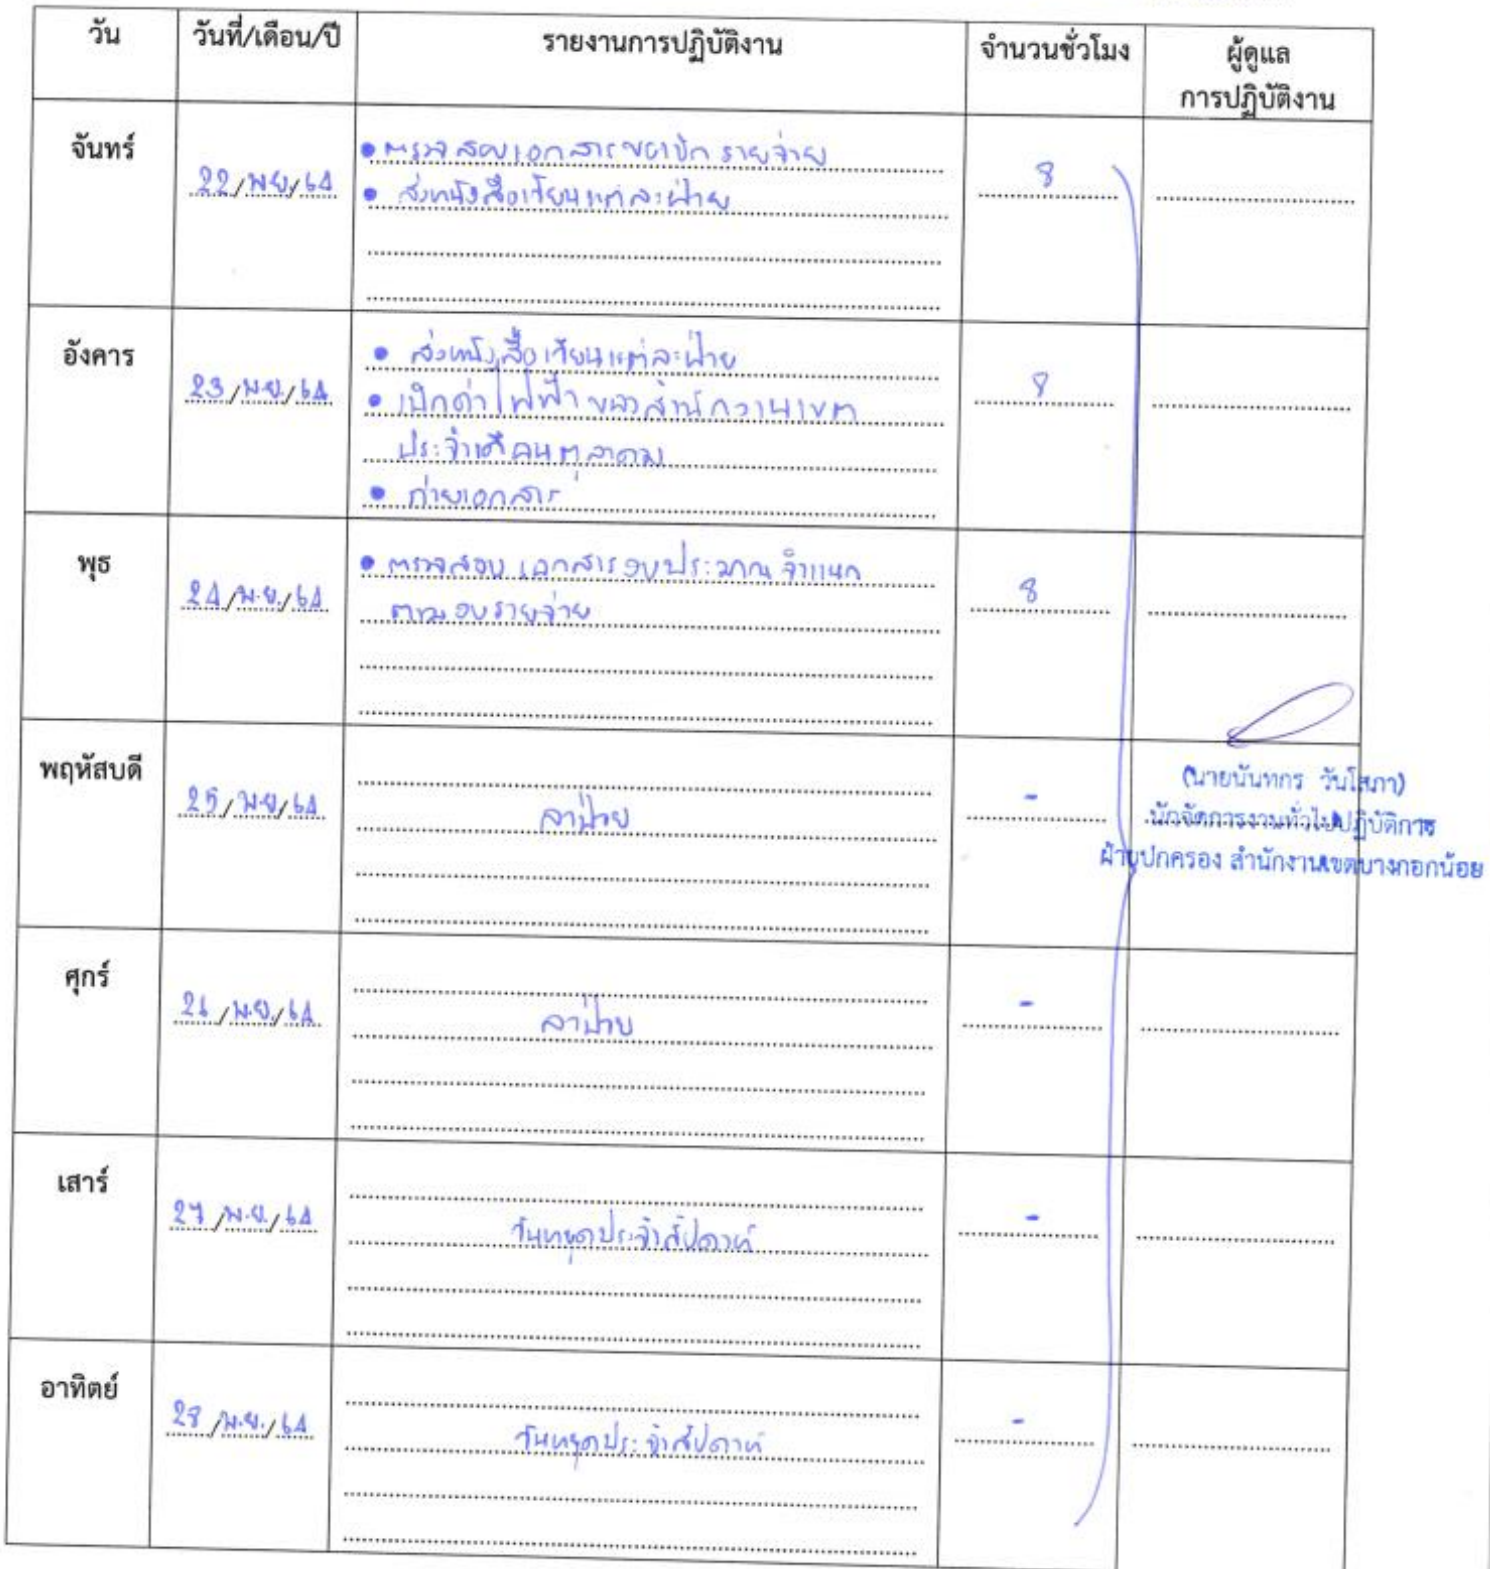 วัน วันที่/เดือน/ปี รายงานการปฏิบัติงาน จำนวนชั่วโมง ผู้ดูแล
การปฏิบัติงาน
จันทร์
22/พ.ย/64
• ตรวจสอบเอกสารขอเบิก รายจ่าย
• ส่งหนังสือเวียนแต่ละฝ่าย
8
อังคาร
23/พ.ย./64
• ส่งหนังสือเวียนแต่ละฝ่าย
• เบิกค่าไฟฟ้าของสำนักงานเขต
ประจำเดือนตุลาคม
• ถ่ายเอกสาร
8
พุธ
24/พ.ย./64
• ตรวจสอบ เอกสารงบประมาณ จำแนก
ตามงบรายจ่าย
8
พฤหัสบดี
25/พ.ย/64
ลาป่วย
-
(นายนันทกร วันโสภา)
นักจัดการงานทั่วไปปฏิบัติการ
ฝ่ายปกครอง สำนักงานเขตบางกอกน้อย
ศุกร์
26/พ.ย./64
ลาป่วย
-
เสาร์
27/พ.ย./64
วันหยุดประจำสัปดาห์
-
อาทิตย์
28/พ.ย./64
วันหยุดประจำสัปดาห์
-